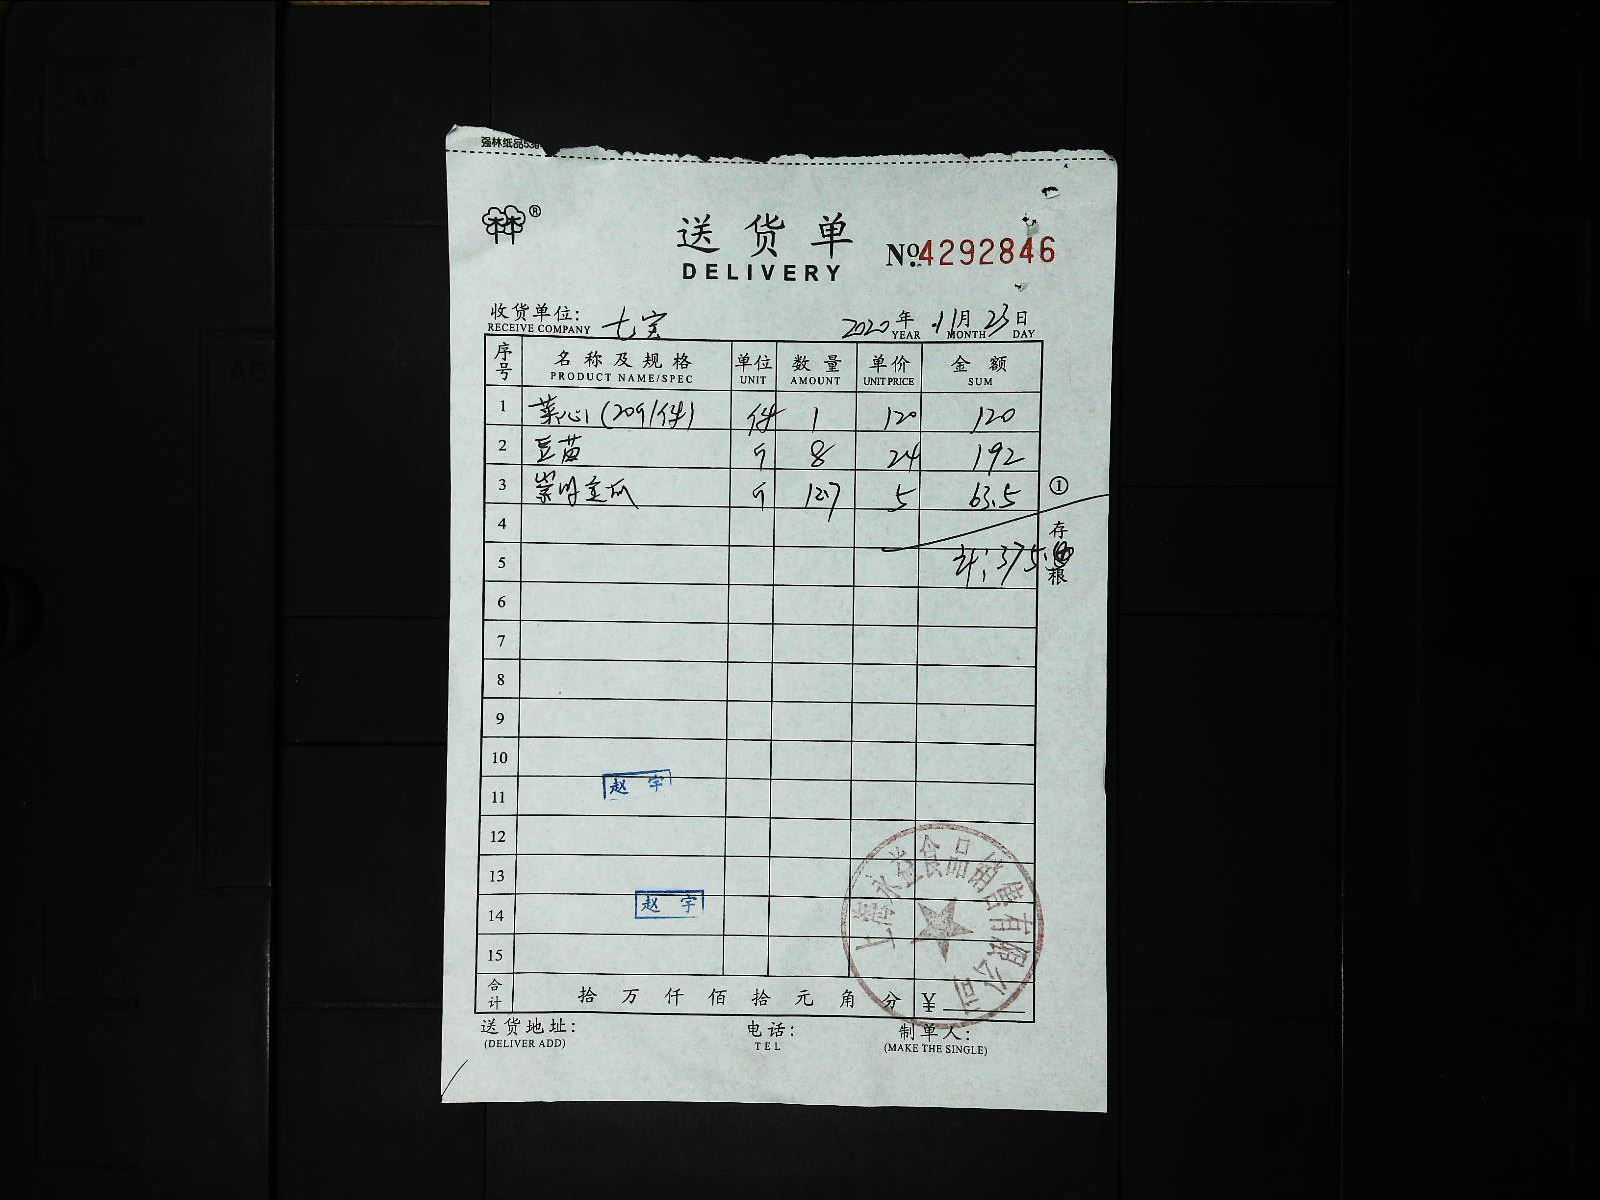 强林纸品536
®
送货单
DELIVERY
№.4292846
收货单位: 七宝
RECEIVE COMPANY
2020年11月23日
YEAR MONTH DAY
序号 名称及规格 单位 数量 单价 金额
PRODUCT NAME/SPEC UNIT AMOUNT UNIT PRICE SUM
1 菜心(20斤/件) 件 1 120 120
2 豆苗 斤 8 24 192
3 崇明金瓜 斤 12.7 5 63.5
①存根
4
计:375.
5
6
7
8
9
10
11 赵宇
12
13
14 赵宇
15
上海永益食品销售有限公司
合计 拾 万 仟 佰 拾 元 角 分 ¥
送货地址: 电话: 制单人:
(DELIVER ADD) TEL (MAKE THE SINGLE)